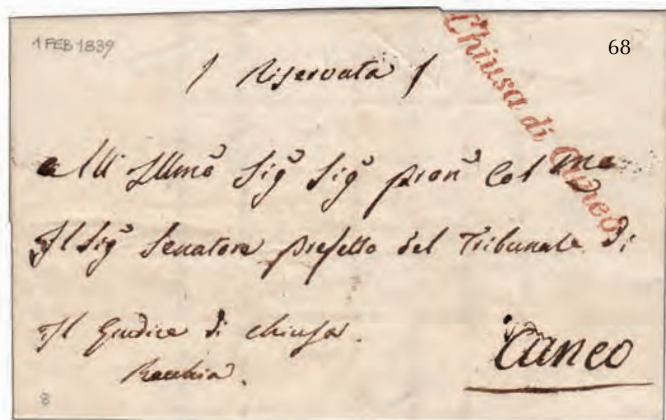 1 FEB 1839
68
Chiusa di Cuneo
/ Riservata /
All Illmo Sigr Sigr pron Col
Il Sigr Senatore prefetto del Tribunale di
Il Giudice di Chiusa.
Cuneo
8